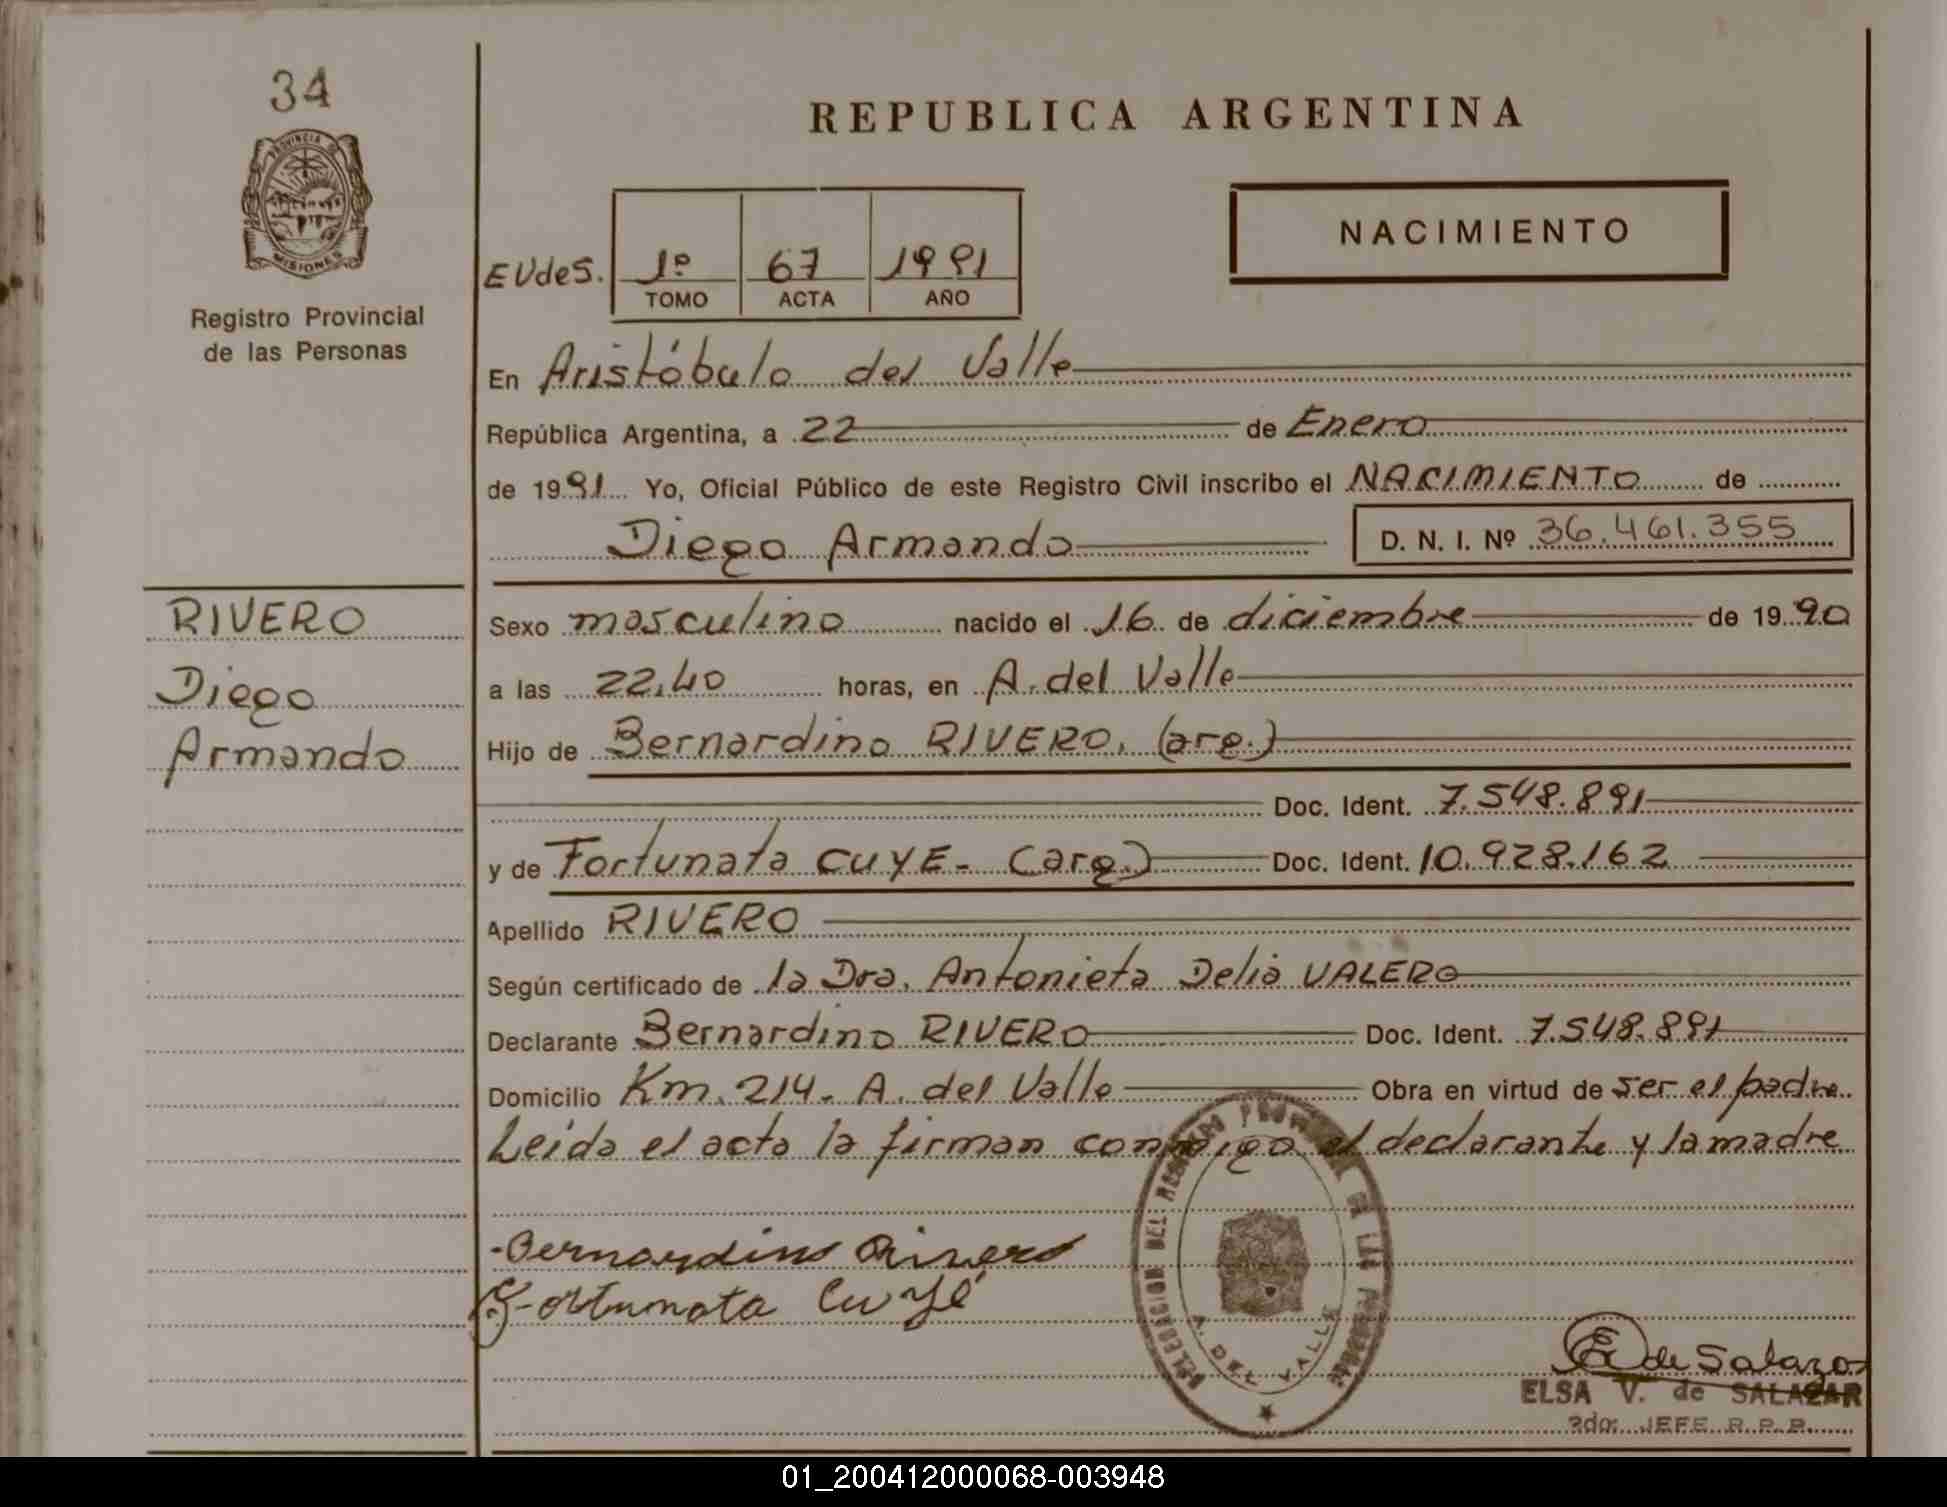 34
PROVINCIA DE
MISIONES
Registro Provincial
de las Personas
REPUBLICA ARGENTINA
NACIMIENTO
EVdeS. 1º 67 1991
TOMO ACTA AÑO
En Aristóbulo del Valle
República Argentina, a 22 de Enero
de 1991 Yo, Oficial Público de este Registro Civil inscribo el NACIMIENTO de
Diego Armando D. N. I. Nº 36.461.355
RIVERO
Diego
Armando
Sexo masculino nacido el 16 de diciembre de 1990
a las 22,40 horas, en A. del Valle
Hijo de Bernardino RIVERO. (arg.)
Doc. Ident. 7.548.891
y de Fortunata CUYE- (arg.) Doc. Ident. 10.928.162
Apellido RIVERO
Según certificado de la Dra. Antonieta Delia VALERO
Declarante Bernardino RIVERO Doc. Ident. 7.548.891
Domicilio Km. 214- A. del Valle Obra en virtud de ser el padre.
Leída el acta la firman conmigo el declarante y la madre
Bernardino Rivero
Fortunata Cuyé
DELEGACION DEL REGISTRO PROVINCIAL DE LAS PERSONAS
A. DEL VALLE
E de Salazar
ELSA V. de SALAZAR
2do. JEFE R.P.P.
01_200412000068-003948